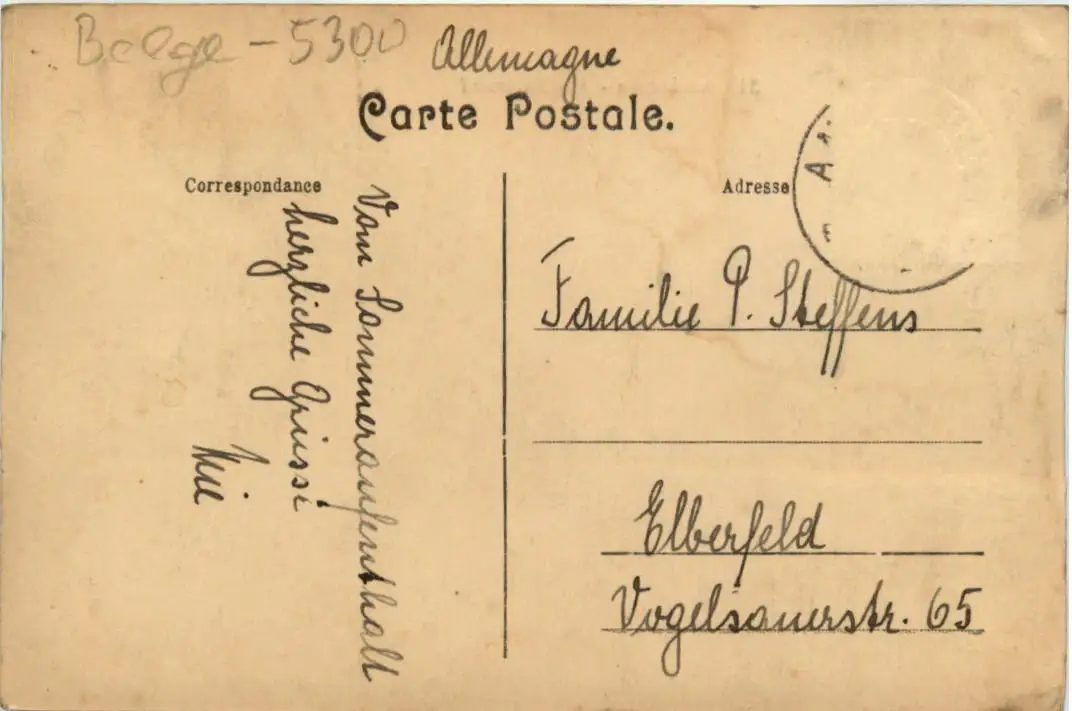 Belge - 5300
Allemagne
Carte Postale.
Correspondance
Adresse
Vom Sommeraufenthalt
herzliche Grüsse
Familie P. Steffens
Elberfeld
Vogelsauerstr. 65